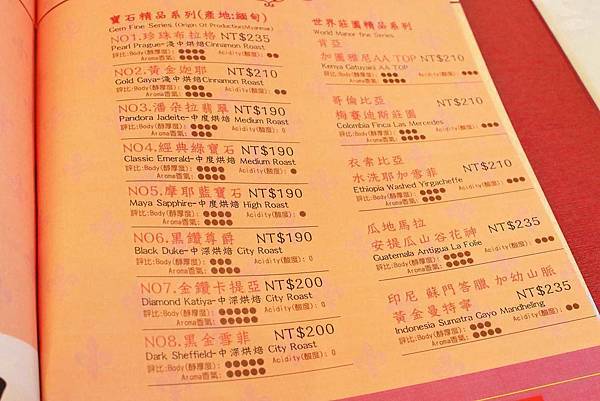 寶石精品系列(產地:緬甸)
Gem Fine Series (Origin Of Production:Myanmar)
NO1.珍珠布拉格 NT$235
Pearl Prague-淺中烘焙Cinnamon Roast
評比:Body(醇厚度): ●●●● Acidity(酸度): ●●
Aroma香氣: ●●●●
NO2.黃金迦耶 NT$210
Gold Gaya-淺中烘焙Cinnamon Roast
評比:Body(醇厚度): ●●●● Acidity(酸度): ●
Aroma香氣: ●●●●
NO3.潘朵拉翡翠 NT$190
Pandora Jadeite-中度烘焙 Medium Roast
評比:Body(醇厚度): ●●●● Acidity(酸度): 0
Aroma香氣: ●●●●
NO4.經典綠寶石 NT$190
Classic Emerald-中度烘焙 Medium Roast
評比:Body(醇厚度): ●●●● Acidity(酸度): ●
Aroma香氣: ●●●●
NO5.摩耶藍寶石 NT$190
Maya Sapphire-中度烘焙 High Roast
評比:Body(醇厚度): ●●●● Acidity(酸度): ●
Aroma香氣: ●●●●
NO6.黑鑽尊爵 NT$190
Black Duke-中深烘焙 City Roast
評比:Body(醇厚度): ●●●● Acidity(酸度): 0
Aroma香氣: ●●●
NO7.金鑽卡提亞 NT$200
Diamond Katiya-中深烘焙 City Roast
評比:Body(醇厚度): ●●●●● Acidity(酸度): 0
Aroma香氣: ●●●●
NO8.黑金雪菲 NT$200
Dark Sheffield-中深烘焙 City Roast
評比:Body(醇厚度): ●●●●● Acidity(酸度): 0
Aroma香氣: ●●●●●
世界莊園精品系列
World Manor Fine Series
肯亞
加圖雅尼AA TOP NT$210
Kenya Gatuyaini AA TOP
評比:Body(醇厚度): ●●●● Acidity(酸度): ●●●
Aroma香氣: ●●●●
哥倫比亞
梅賽迪斯莊園 NT$210
Colombia Finca Las Mercedes
評比:Body(醇厚度): ●●●● Acidity(酸度): ●●●
Aroma香氣: ●●●●
衣索比亞
水洗耶加雪菲 NT$210
Ethiopia Washed Yirgacheffe
評比:Body(醇厚度): ●●●● Acidity(酸度): ●●●
Aroma香氣: ●●●●●
瓜地馬拉
安提瓜山谷花神 NT$235
Guatemala Antigua La Folie
評比:Body(醇厚度): ●●●● Acidity(酸度): ●●●
Aroma香氣: ●●●●
印尼 蘇門答臘 加幼山脈
黃金曼特寧 NT$235
Indonesia Sumatra Gayo Mandheling
評比:Body(醇厚度): ●●●●● Acidity(酸度): ●●
Aroma香氣: ●●●●